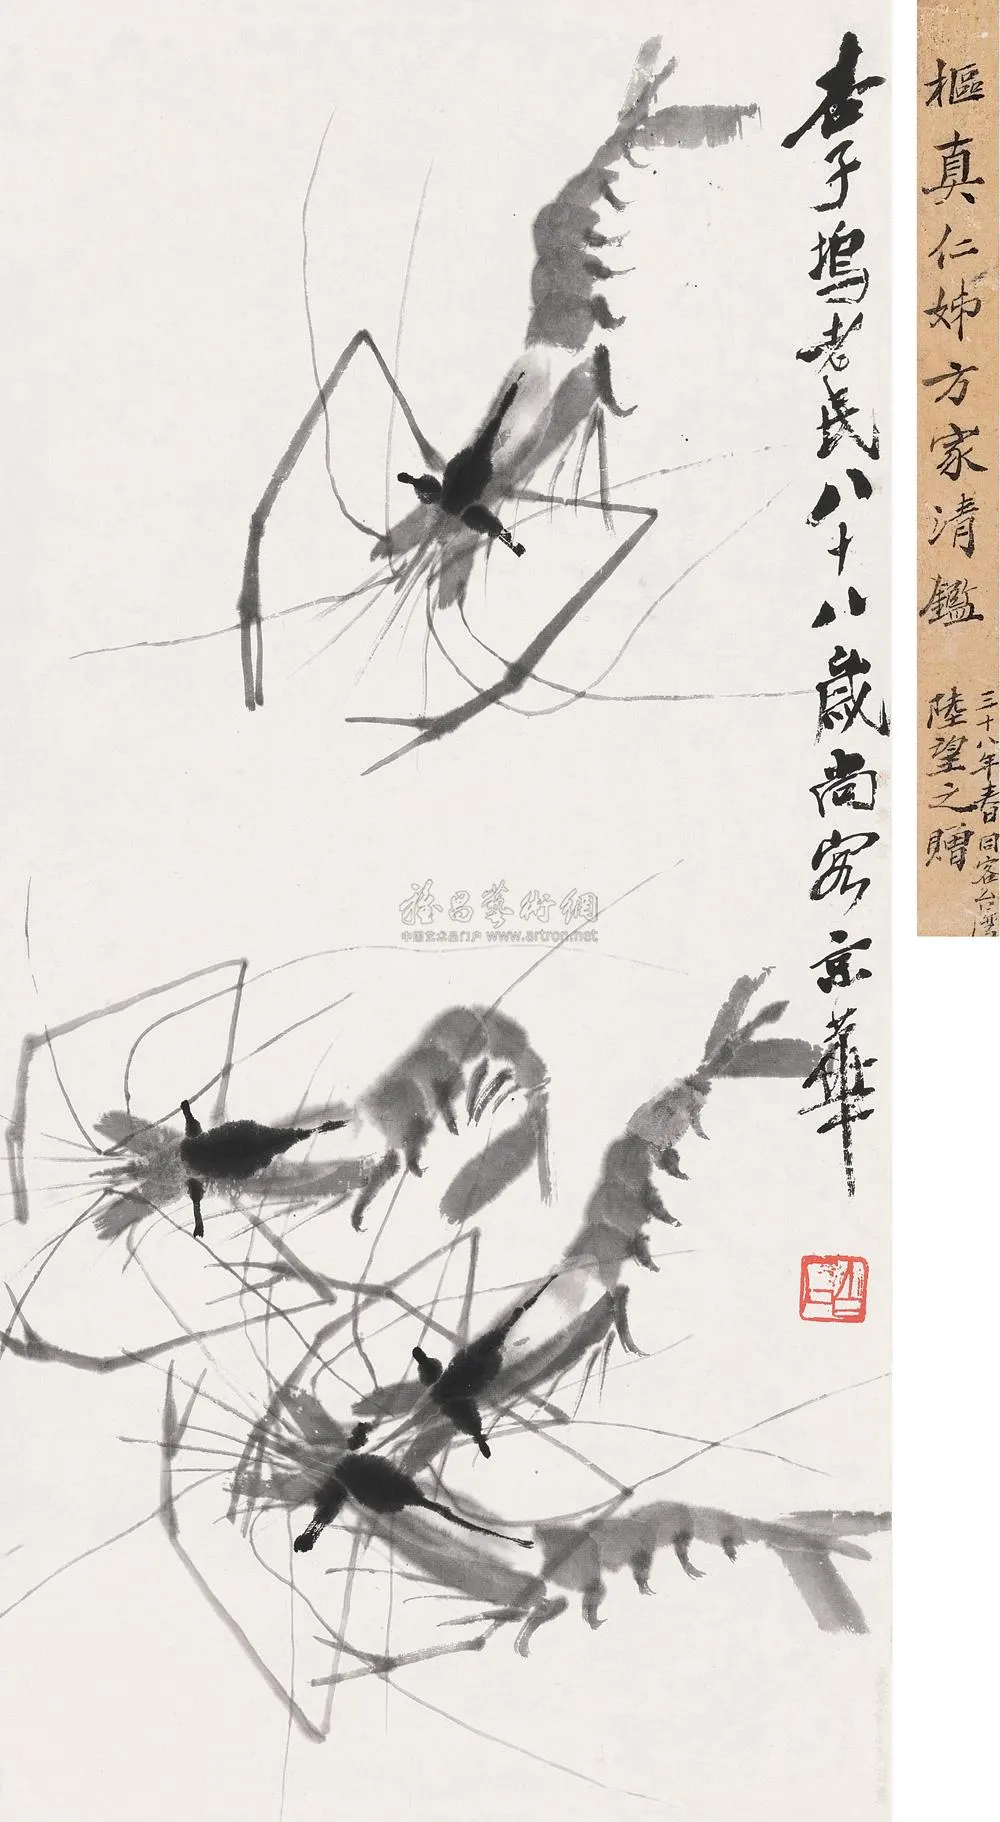 杏子塢老民八十八歲尚客京華
樞真仁姊方家清鑑
三十八年春日同客台灣
陸望之贈
雅昌藝術網
中国艺术品门户 www.artron.net